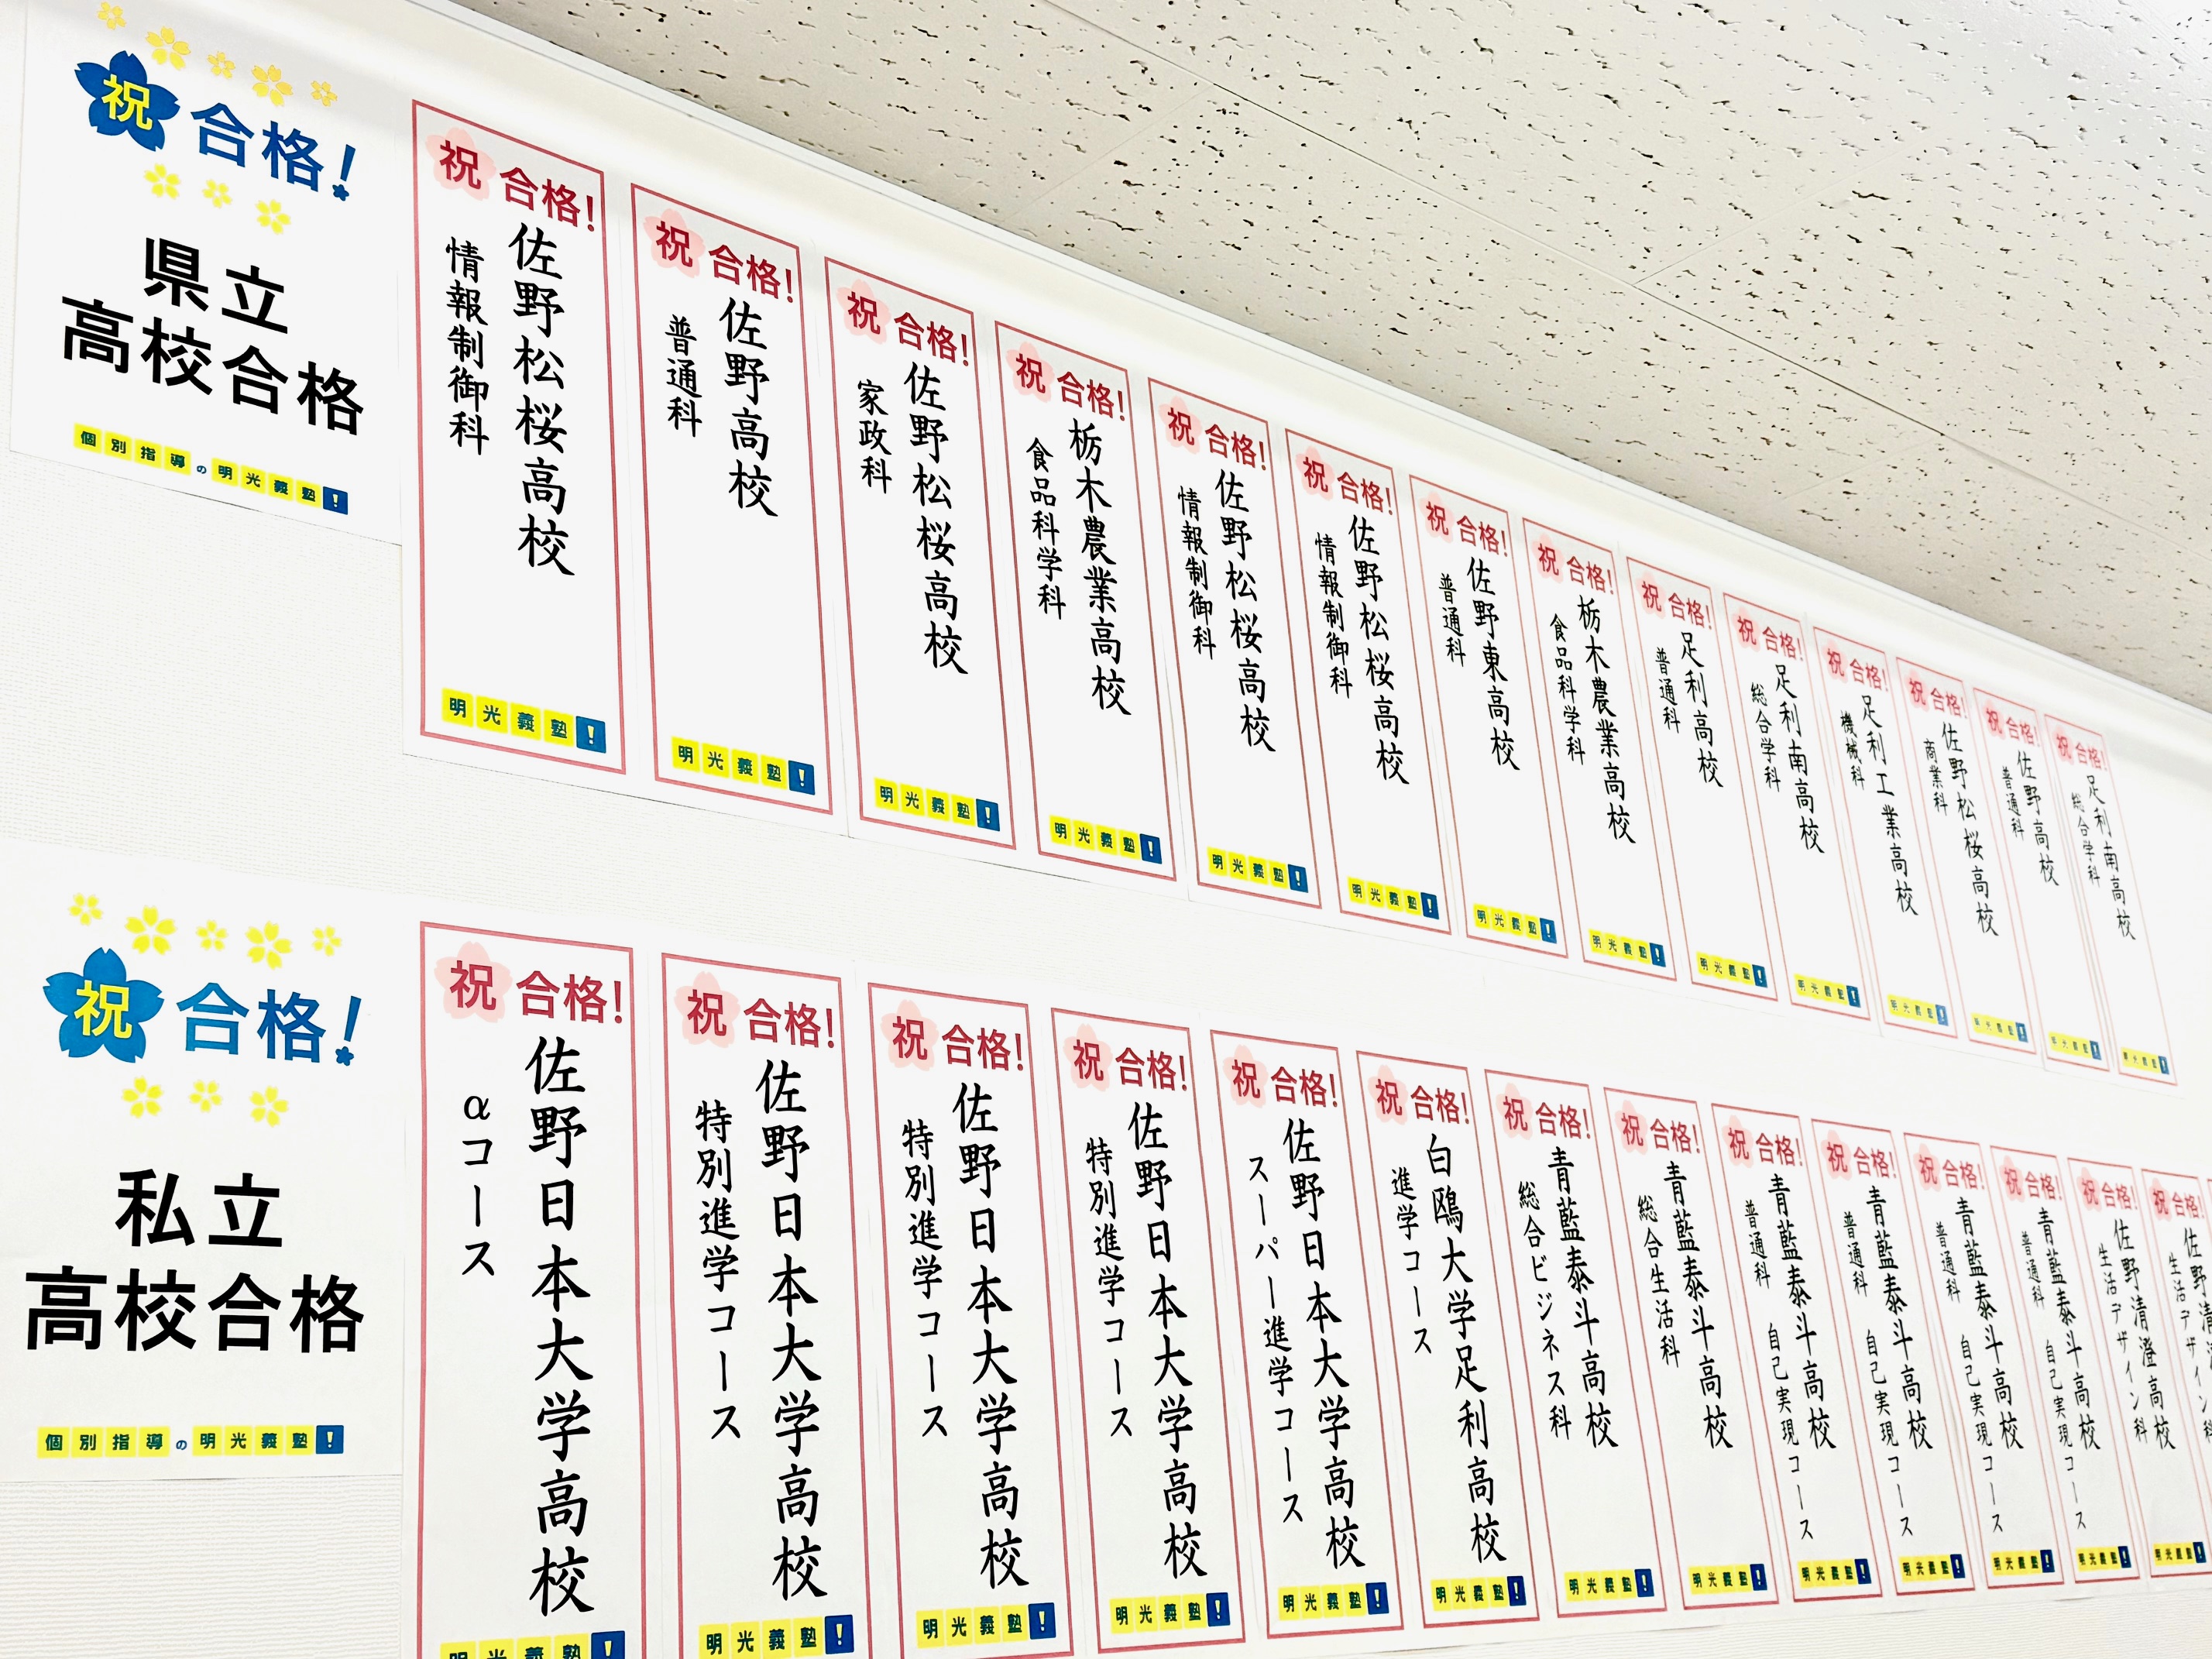 祝 合格!
県立
高校合格
個別指導の明光義塾!
祝 合格!
佐野松桜高校
情報制御科
明光義塾!
祝 合格!
佐野高校
普通科
明光義塾!
祝 合格!
佐野松桜高校
家政科
明光義塾!
祝 合格!
栃木農業高校
食品科学科
明光義塾!
祝 合格!
佐野松桜高校
情報制御科
明光義塾!
祝 合格!
佐野松桜高校
情報制御科
明光義塾!
祝 合格!
佐野東高校
普通科
明光義塾!
祝 合格!
栃木農業高校
食品科学科
明光義塾!
祝 合格!
足利高校
普通科
明光義塾!
祝 合格!
足利南高校
総合学科
明光義塾!
祝 合格!
足利工業高校
機械科
明光義塾!
祝 合格!
佐野松桜高校
商業科
明光義塾!
祝 合格!
佐野高校
普通科
明光義塾!
祝 合格!
足利南高校
総合学科
明光義塾!
祝 合格!
私立
高校合格
個別指導の明光義塾!
祝 合格!
佐野日本大学高校
αコース
明光義塾!
祝 合格!
佐野日本大学高校
特別進学コース
明光義塾!
祝 合格!
佐野日本大学高校
特別進学コース
明光義塾!
祝 合格!
佐野日本大学高校
特別進学コース
明光義塾!
祝 合格!
佐野日本大学高校
スーパー進学コース
明光義塾!
祝 合格!
白鷗大学足利高校
進学コース
明光義塾!
祝 合格!
青藍泰斗高校
総合ビジネス科
明光義塾!
祝 合格!
青藍泰斗高校
総合生活科
明光義塾!
祝 合格!
青藍泰斗高校
普通科 自己実現コース
明光義塾!
祝 合格!
青藍泰斗高校
普通科 自己実現コース
明光義塾!
祝 合格!
青藍泰斗高校
普通科 自己実現コース
明光義塾!
祝 合格!
青藍泰斗高校
普通科 自己実現コース
明光義塾!
祝 合格!
佐野清澄高校
生活デザイン科
明光義塾!
祝 合格!
佐野清
生活デザイン科